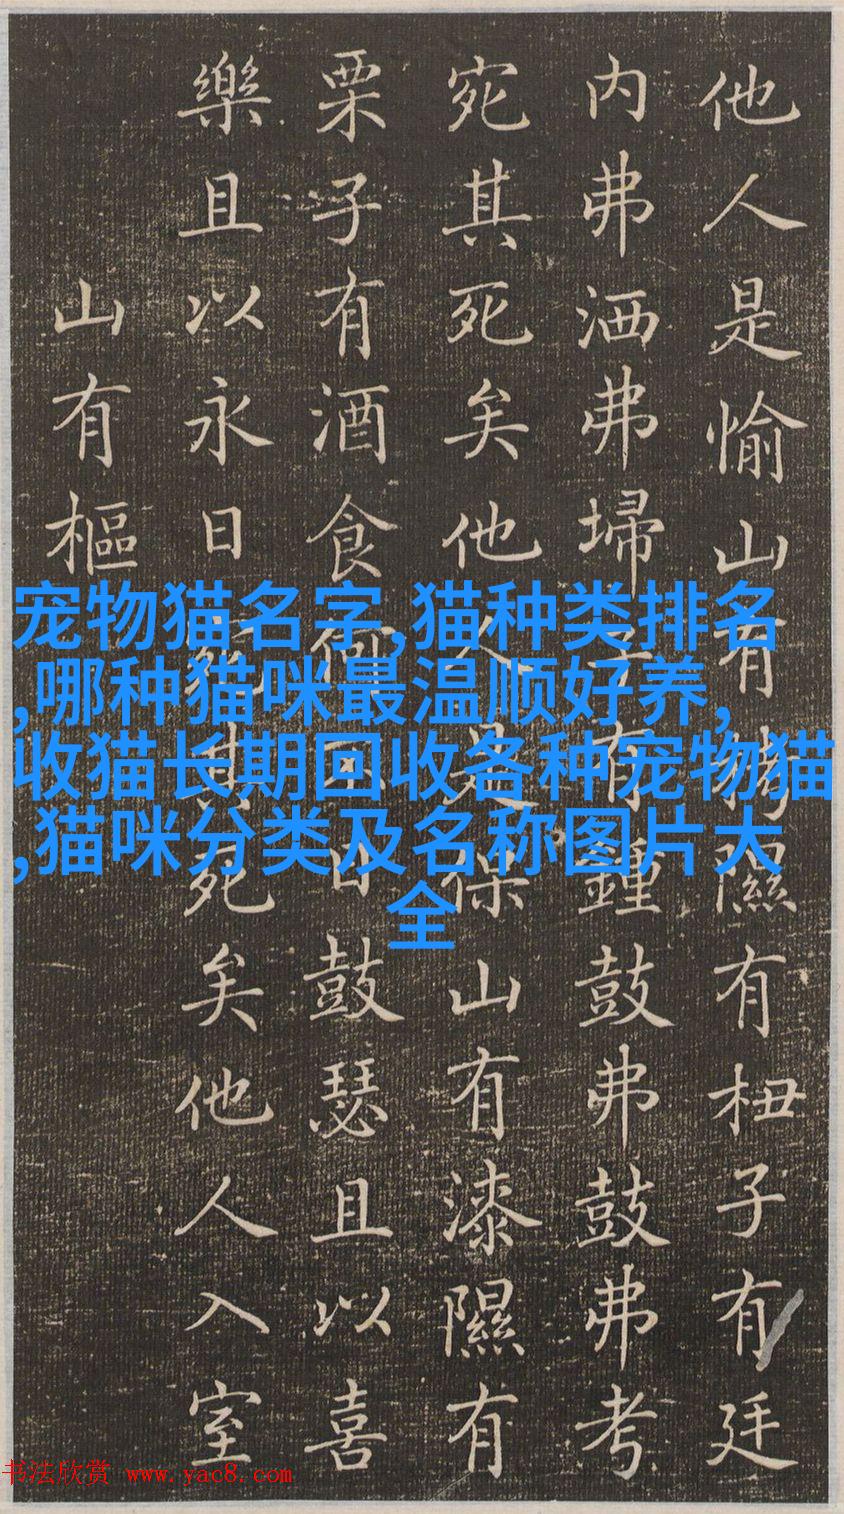 他人是愉山有栲隰有杻子有廷
内弗洒弗埽子有鍾鼓弗鼓弗考
宛其死矣他人是保山有漆隰有
栗子有酒食何不日鼓瑟且以喜
樂且以永日宛其死矣他人入室
山有樞
宠物猫名字,猫种类排名
,哪种猫咪最温顺好养,
收猫长期回收各种宠物猫
,猫咪分类及名称图片大
全
书法欣赏 www.yac8.com